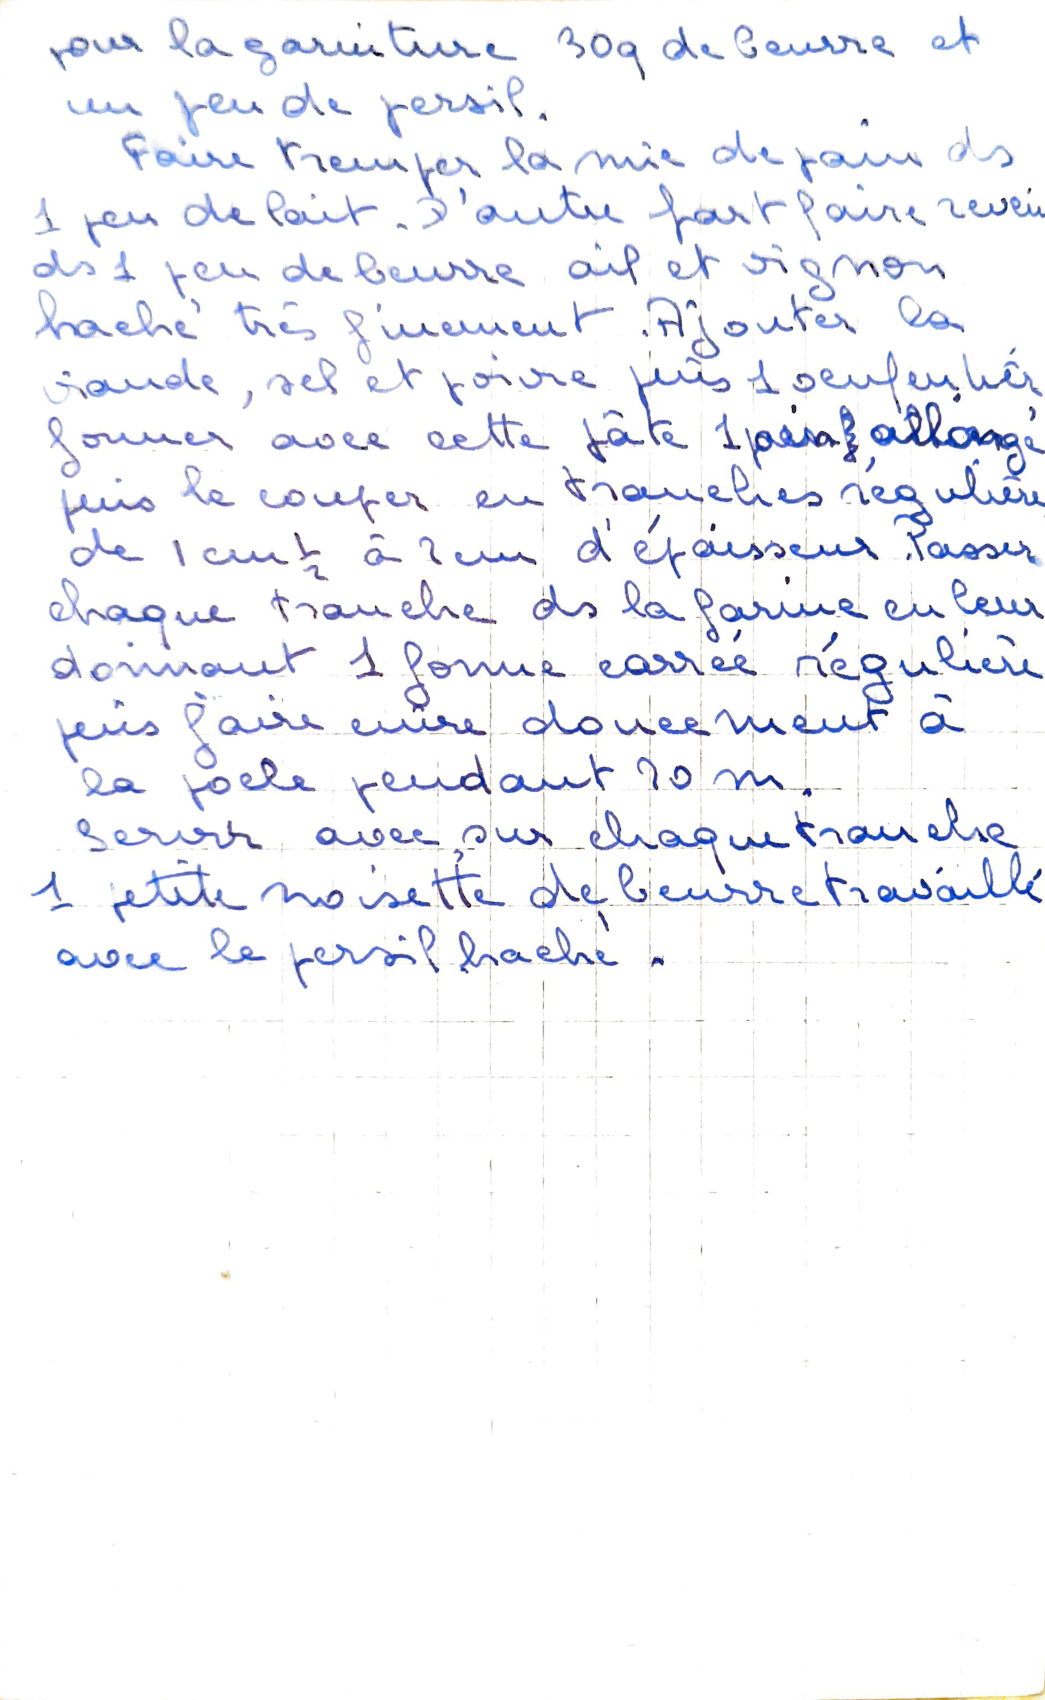 pour la garniture 30g de beurre et
un peu de persil.
Faire tremper la mie de pain ds
1 peu de lait. D'autre part faire reveni
ds 1 peu de beurre ail et oignon
haché très finement. Ajouter la
viande, sel et poivre puis 1 oeuf entier
former avec cette pâte 1 pain allongé
puis le couper en tranches régulière
de 1 cm ½ à 2 cm d'épaisseur. Passer
chaque tranche ds la farine en leur
donnant 1 forme carréé régulière
puis faire cuire doucement à
la poele pendant 20 m.
Servir avec, sur chaque tranche
1 petite noisette de beurre travaillé
avec le persil haché.